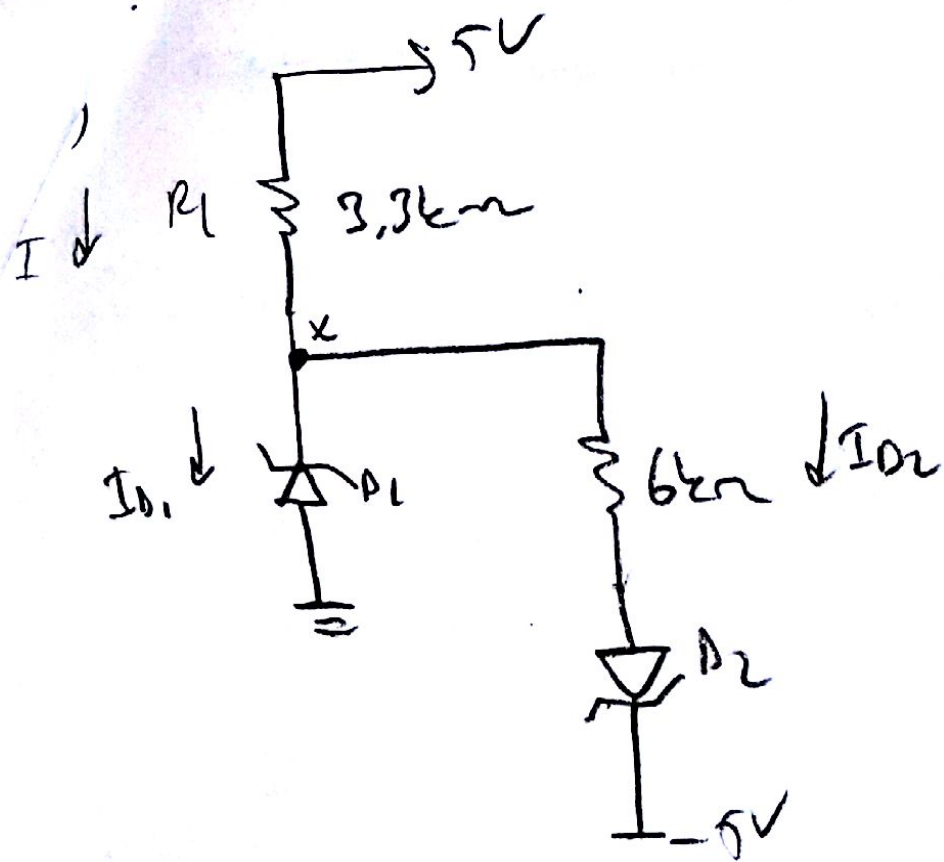 5V
I
R1
3,3kΩ
x
ID1
D1
6kΩ
ID2
D2
-5V